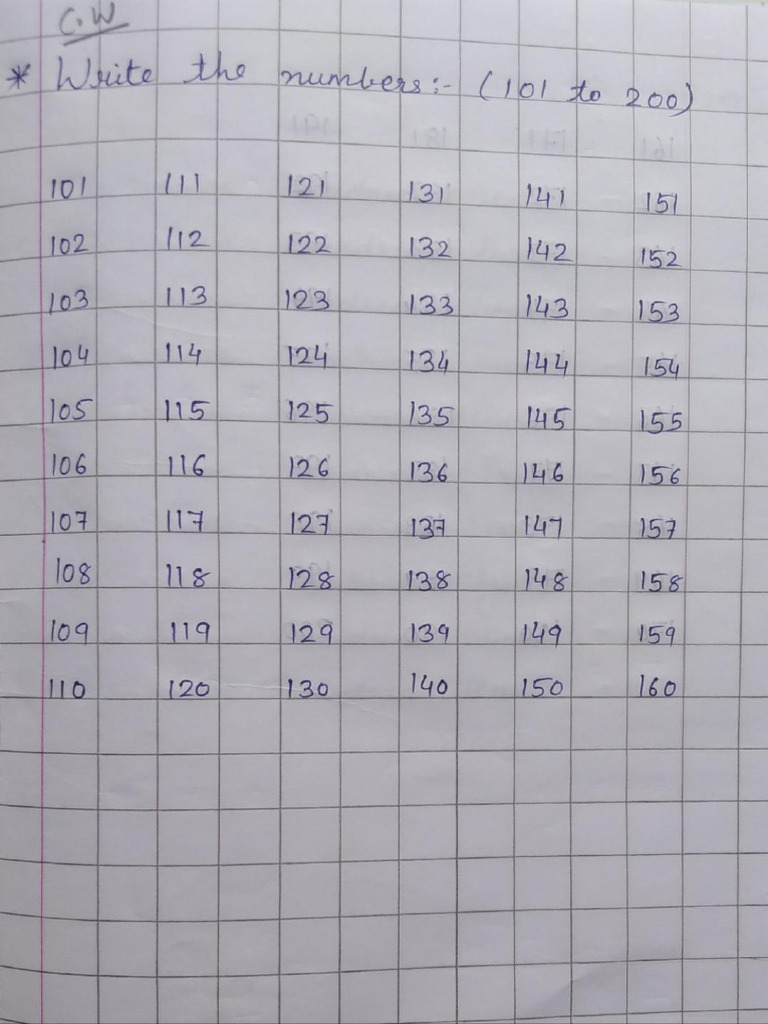 C.W
* Write the numbers:- (101 to 200)
101 111 121 131 141 151
102 112 122 132 142 152
103 113 123 133 143 153
104 114 124 134 144 154
105 115 125 135 145 155
106 116 126 136 146 156
107 117 127 137 147 157
108 118 128 138 148 158
109 119 129 139 149 159
110 120 130 140 150 160